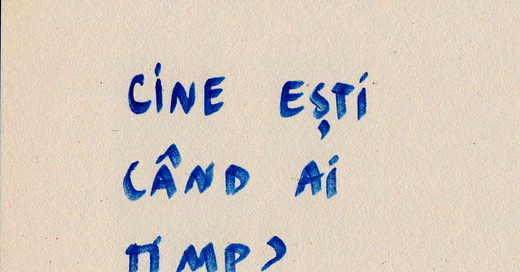 CINE EȘTI
CÂND AI
TIMP?